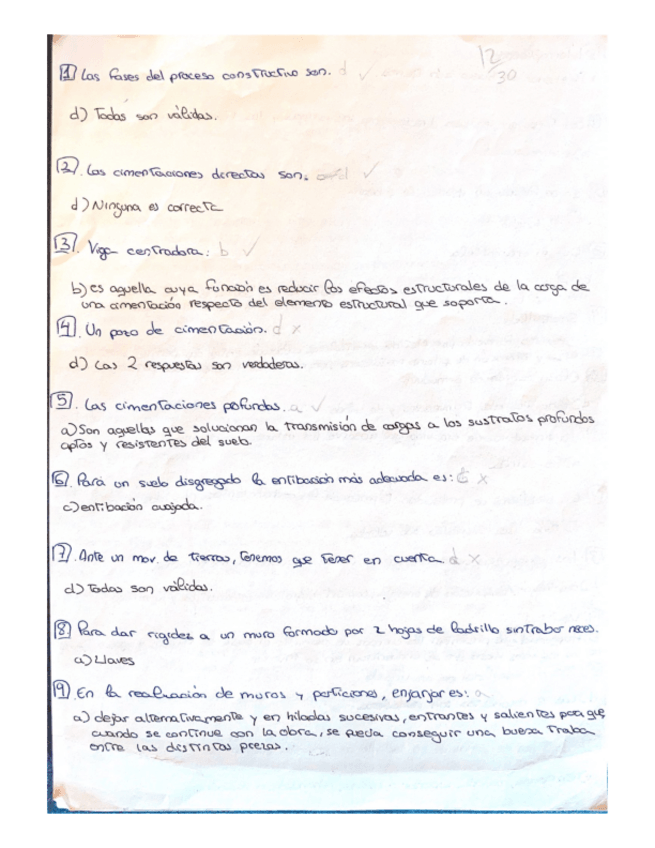 12/30
1 Las fases del proceso constructivo son. d ✓
d) Todas son válidas.
2. Las cimentaciones directas son. d ✓
d) Ninguna es correcta
3. Viga centradora: b ✓
b) es aquella cuya función es reducir los efectos estructurales de la carga de
una cimentación respecto del elemento estructural que soporta.
4. Un pozo de cimentación. d x
d) Las 2 respuestas son verdaderas.
5. Las cimentaciones pofundas. a ✓
a) Son aquellas que solucionan la transmisión de cargas a los sustratos profundos
aptos y resistentes del suelo.
6. Para un suelo disgregado la entibación más adecuada es: c x
c) entibación cuajada.
7. Ante un mov. de tierras, tenemos que tener en cuenta. d x
d) Todas son válidas.
8. Para dar rigidez a un muro formado por 2 hojas de ladrillo sin trabar neces.
a) Llaves
9. En la realización de muros y particiones, enjarjar es: a
a) dejar alternativamente y en hiladas sucesivas, entrantes y salientes para que
cuando se continue con la obra, se pueda conseguir una buena traba
entre las distintas piezas.